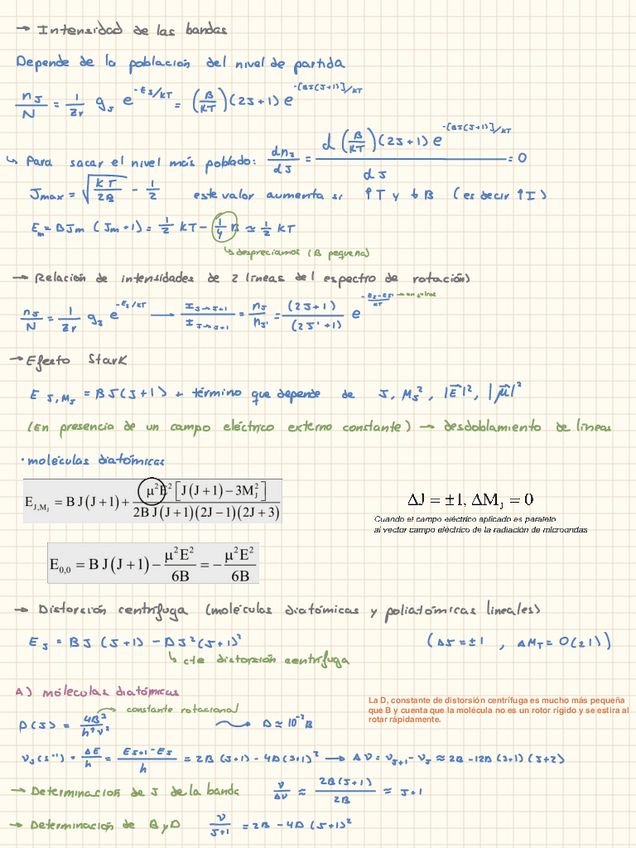 → Intensidad de las bandas
Depende de la población del nivel de partida
n_J/N = 1/Zr g_J e^(-E_J/KT) = (B/KT)(2J+1) e^(-[BJ(J+1)]/KT)
↳ Para sacar el nivel más poblado: dn_J/dJ = d (B/KT)(2J+1) e^(-[BJ(J+1)]/KT) / dJ = 0
J_max = √(KT/2B) - 1/2 este valor aumenta si ↑T y ↓B (es decir ↑I)
E_m = BJm (Jm+1) = 1/2 KT - 1/4 B ≈ 1/2 KT
↳ despreciamos (B pequeña)
→ Relación de intensidades de 2 líneas del espectro de rotación
n_J/N = 1/Zr g_J e^(-E_J/KT) → I_J→J+1 / I_J'→J'+1 = n_J/n_J' = (2J+1)/(2J'+1) e^(-(E_J-E_J')/KT)
→ Efecto Stark
E_J,M_J = BJ(J+1) + término que depende de J, M_J², |E⃗|², |μ⃗|²
(En presencia de un campo eléctrico externo constante) → desdoblamiento de líneas
· moléculas diatómicas
E_J,M_J = B J(J+1) + μ²E²[J(J+1)-3M_J²] / 2B J(J+1)(2J-1)(2J+3)
ΔJ = ±1, ΔM_J = 0
Cuando el campo eléctrico aplicado es paralelo
al vector campo eléctrico de la radiación de microondas
E_0,0 = B J(J+1) - μ²E²/6B = - μ²E²/6B
→ Distorsión centrífuga (moléculas diatómicas y poliatómicas lineales)
E_J = BJ (J+1) - DJ²(J+1)² (ΔJ = ±1 , ΔM_J = 0(±1))
↳ cte distorsión centrífuga
A) moléculas diatómicas
La D, constante de distorsión centrífuga es mucho más pequeña
que B y cuenta que la molécula no es un rotor rígido y se estira al
rotar rápidamente.
→ constante rotacional
D(J) = 4B³/h²ν² D ≈ 10⁻³B
ν_J(s⁻¹) = ΔE/h = (E_J+1 - E_J)/h = 2B (J+1) - 4D (J+1)³ → Δν = ν_J+1 - ν_J ≈ 2B - 12D (J+1)(J+2)
→ Determinación de J de la banda ν/Δν ≈ 2B(J+1)/2B ≈ J+1
→ Determinación de B y D ν/(J+1) = 2B - 4D (J+1)²